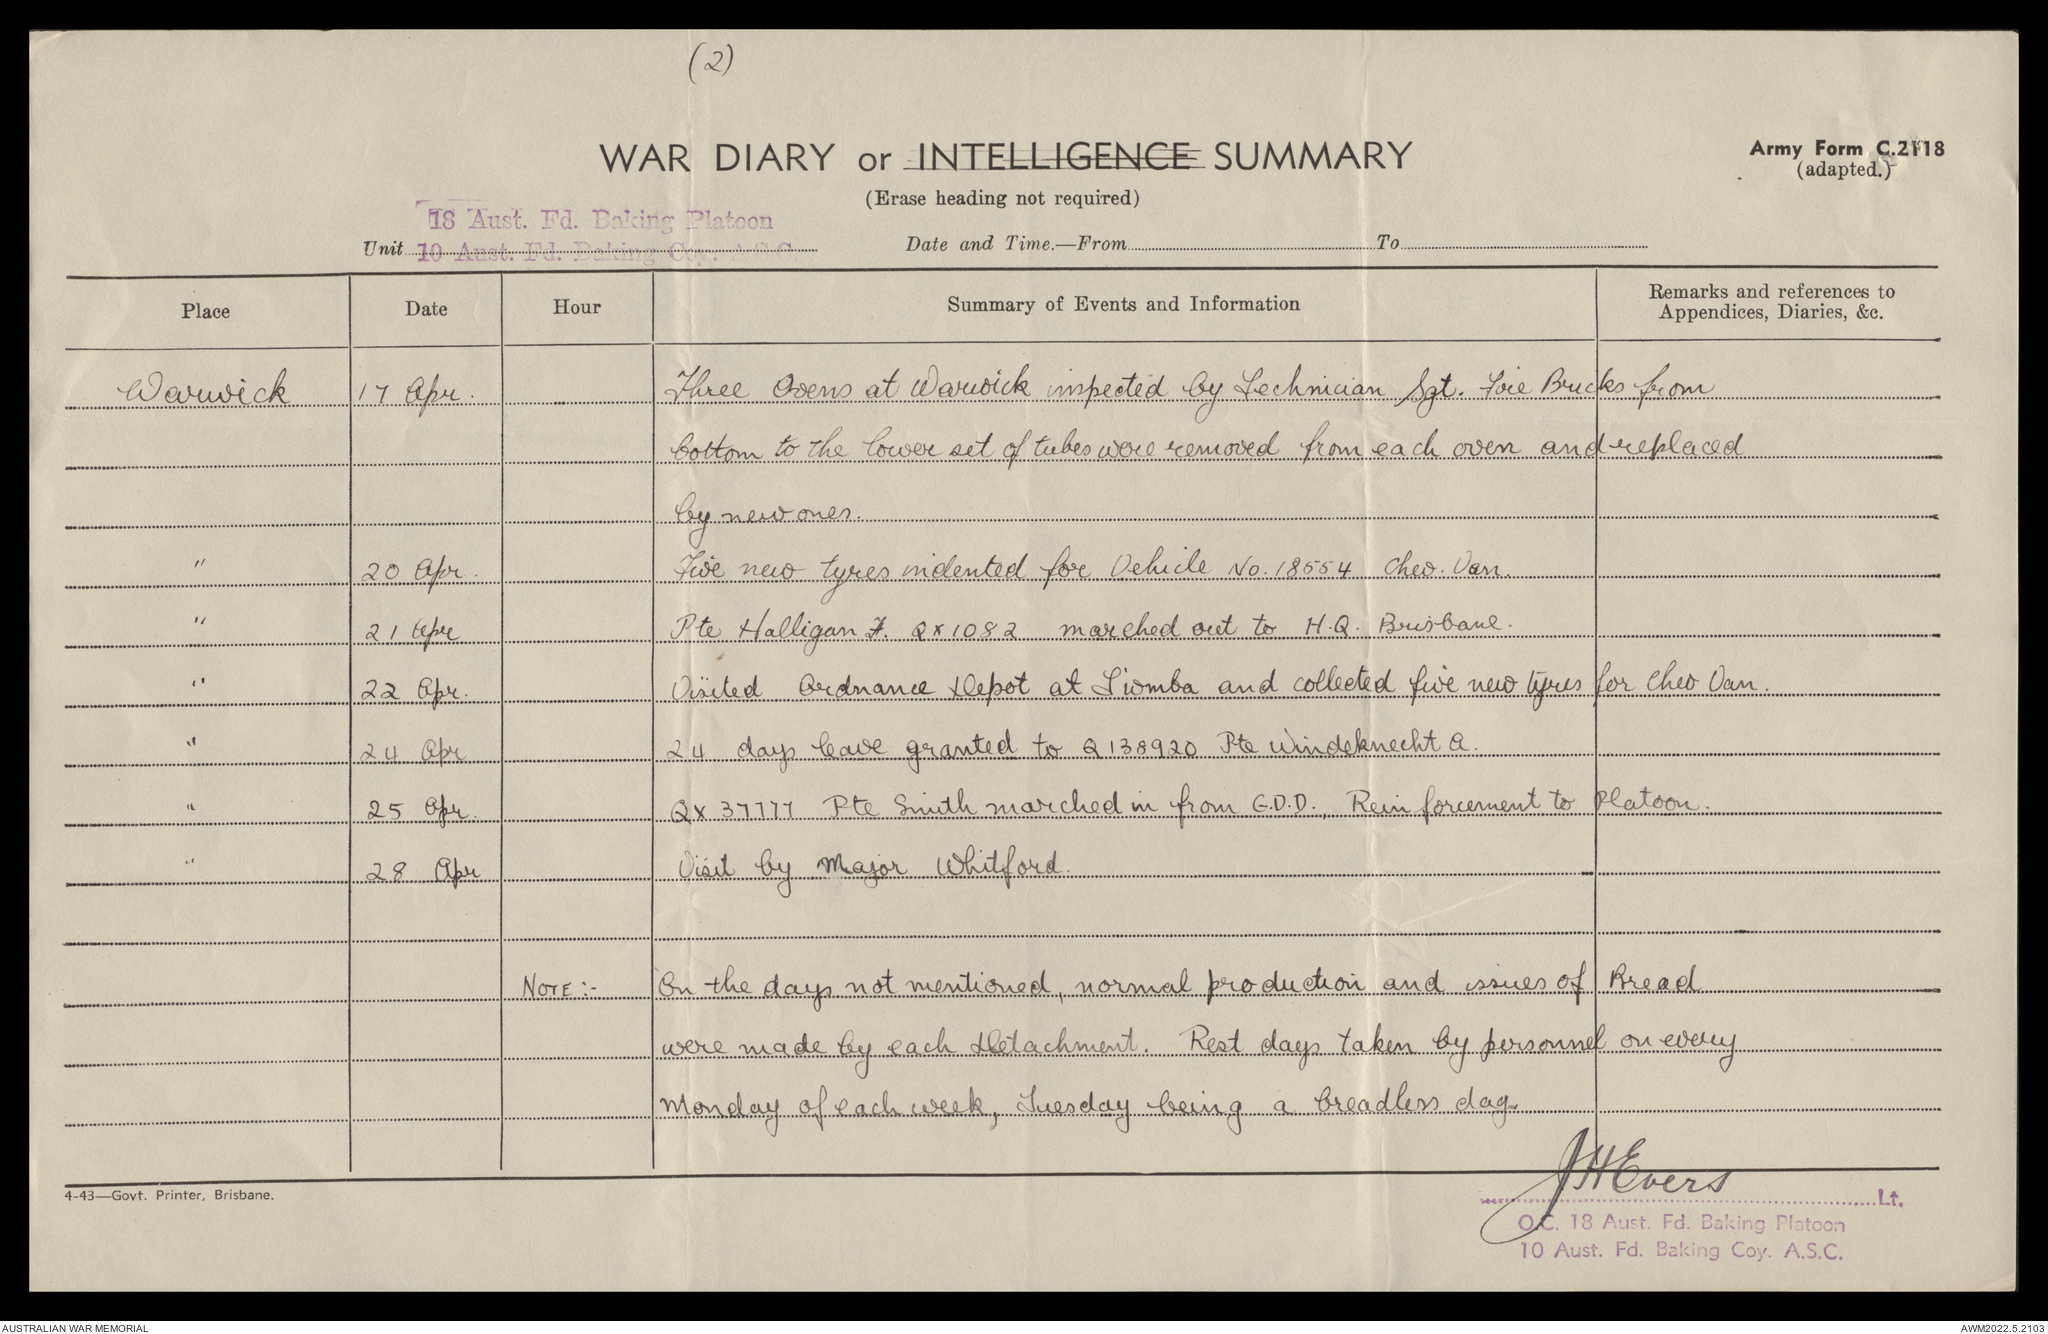 (2)
WAR DIARY or INTELLIGENCE SUMMARY
Army Form C.2118
(adapted.)
(Erase heading not required)
18 Aust. Fd. Baking Platoon
Unit 10 Aust. Fd. Baking Coy. A.S.C.
Date and Time.—From To
Place Date Hour Summary of Events and Information Remarks and references to
Appendices, Diaries, &c.
Warwick 17 Apr. Three Ovens at Warwick inspected by Technician Sgt. Fire Bricks from
bottom to the lower set of tubes were removed from each oven and replaced
by new ones.
" 20 Apr. Five new tyres indented for Vehicle No. 18554 Chev. Van.
" 21 Apr Pte Halligan F. QX1082 marched out to H.Q. Brisbane.
" 22 Apr. Visited Ordnance Depot at and collected five new tyres for Chev Van.
" 24 Apr 24 days leave granted to Q138920 Pte Windeknecht A.
" 25 Apr. QX 37777 Pte Smith marched in from G.D.D., Reinforcement to Platoon.
" 28 Apr Visit by Major Whitford.
NOTE:- On the days not mentioned, normal production and issues of Bread
were made by each Detachment. Rest days taken by personnel on every
Monday of each week, Tuesday being a breadless day.
JHEvers Lt.
O.C. 18 Aust. Fd. Baking Platoon
10 Aust. Fd. Baking Coy. A.S.C.
4-43—Govt. Printer, Brisbane.
AUSTRALIAN WAR MEMORIAL
AWM2022.5.2103